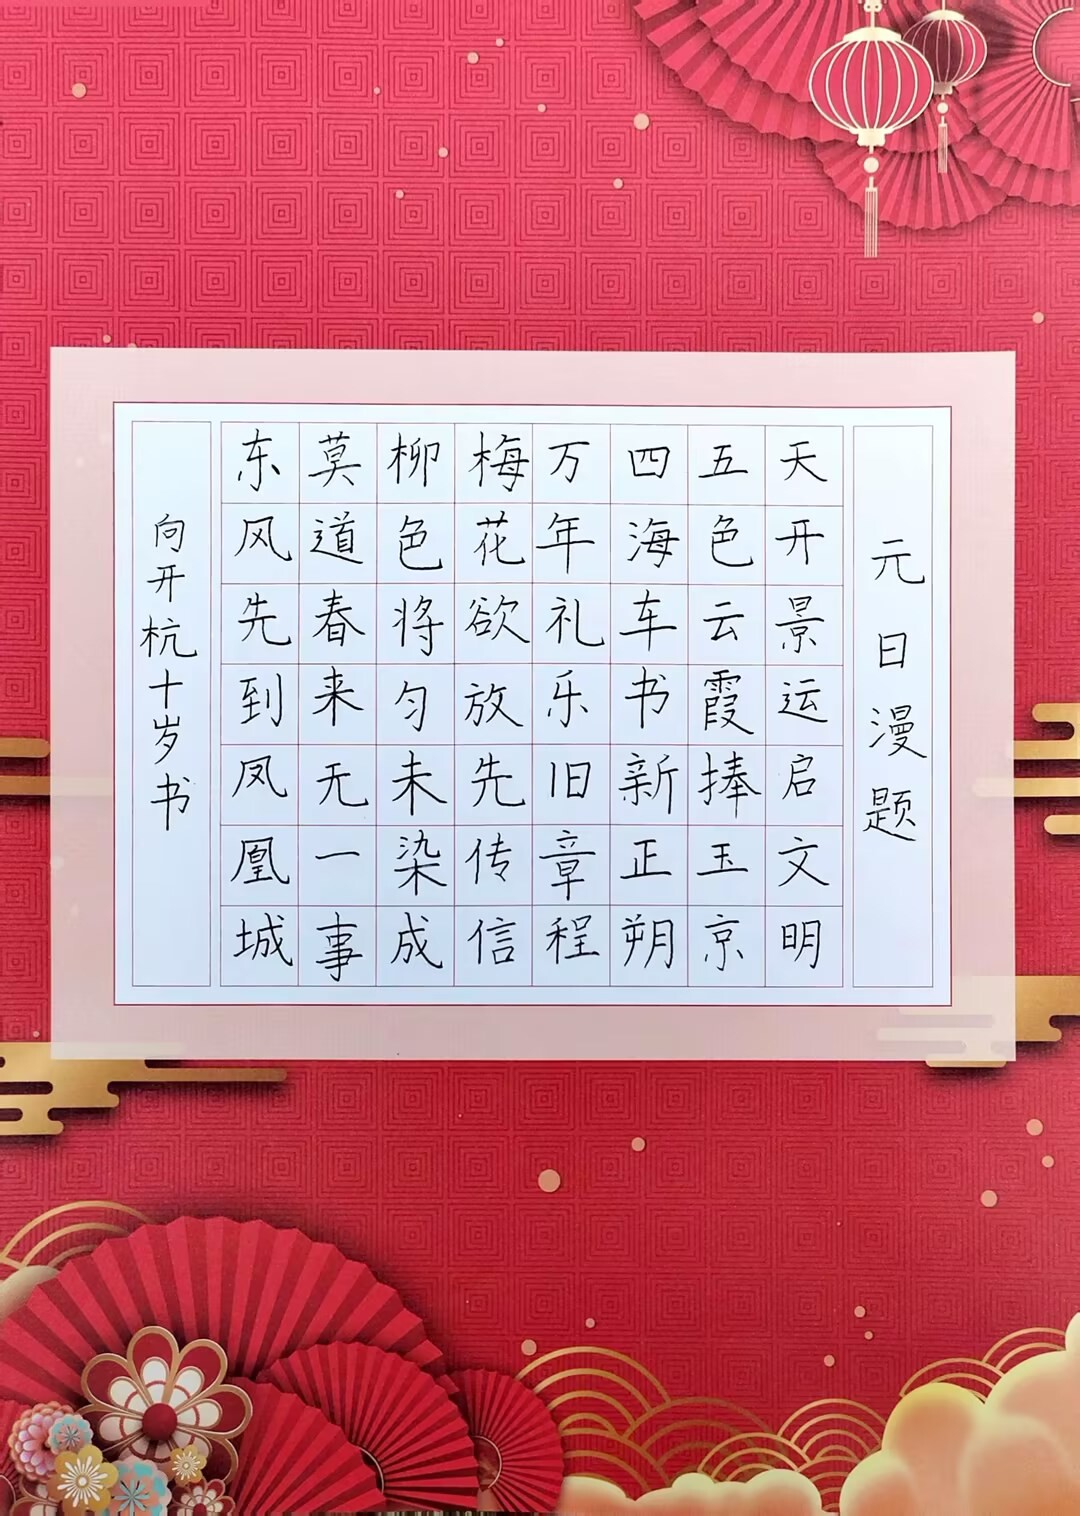 元日漫题
天开景运启文明
五色云霞捧玉京
四海车书新正朔
万年礼乐旧章程
梅花欲放先传信
柳色将匀未染成
莫道春来无一事
东风先到凤凰城
向开杭十岁书